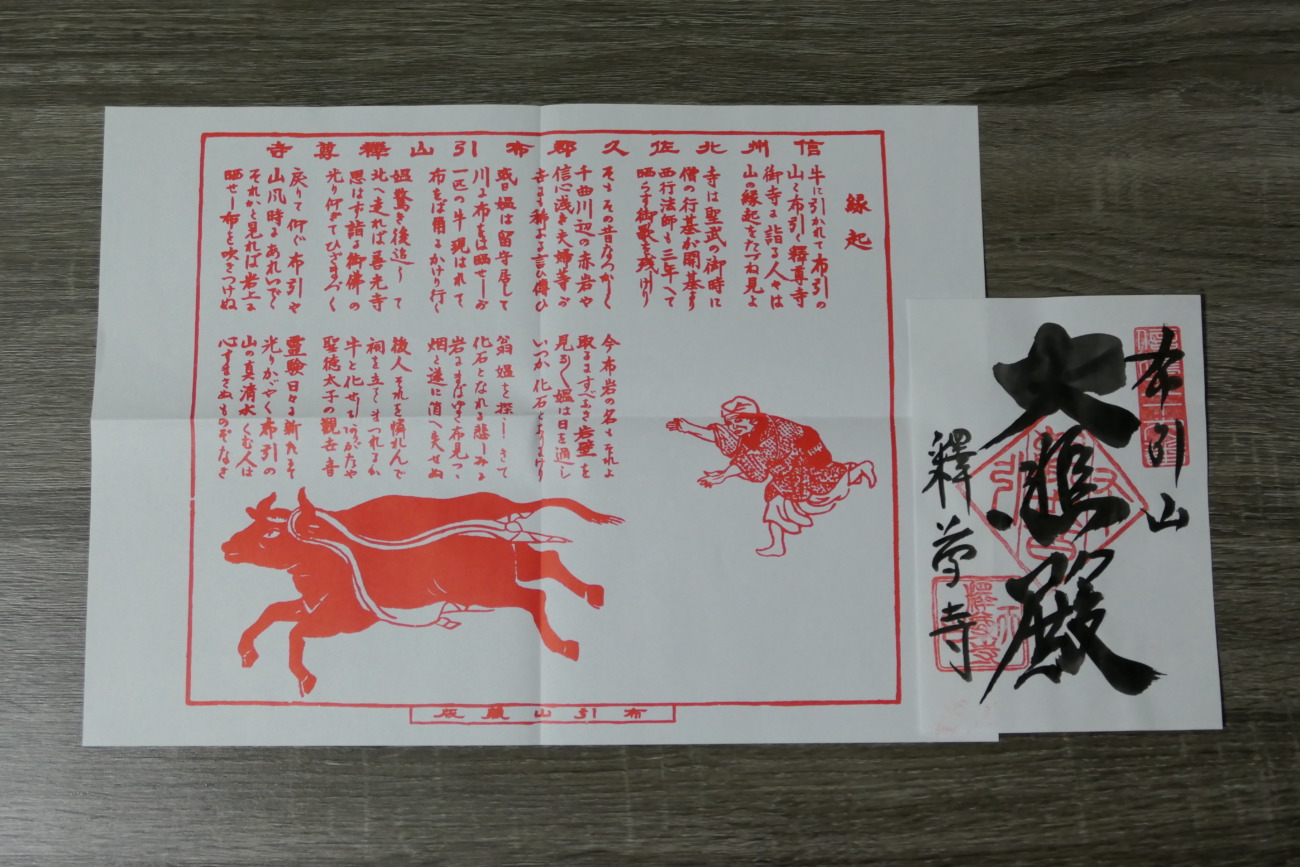 信州北佐久郡布引山釋尊寺
縁起
牛に引かれて布引の
布引く釋尊寺
御寺に詣る人々は
山の縁起をたづね見よ
寺は聖武の御時に
僧の行基が開基す
西行法師も三年へて
晒らす御歌を残けり
そもその昔なつかしく
千曲川辺の赤岩や
信心浅き夫婦等が
言ひ傳ひ
或日媼は留守居して
川に布をば晒せしが
一匹の牛現はれて
布をば角にかけり行く
媼驚き後追して
北へ走れば善光寺
思はず詣る御佛の
光り仰ぎてひざまづく
戻りて仰ぐ布引や
山風時にあれいでて
それかと見れば岩上に
晒せし布を吹きつけぬ
今布岩の名もそれよ
取るにすべなき岩壁を
媼は日を過し
いつか化石となりにけり
翁媼を探しきて
化石となれる悲しみに
岩にまばゆき布見つゝ
烟と遂に消へ失せぬ
後人それを憐れんで
祠を立てまつれるか
牛と化せし
聖徳太子の観世音
霊験日々に新たにて
光りかがやく布引の
山の真清水くむ人は
心すまさぬものぞなき
布引山蔵版
布引山
大悲殿
釋尊寺